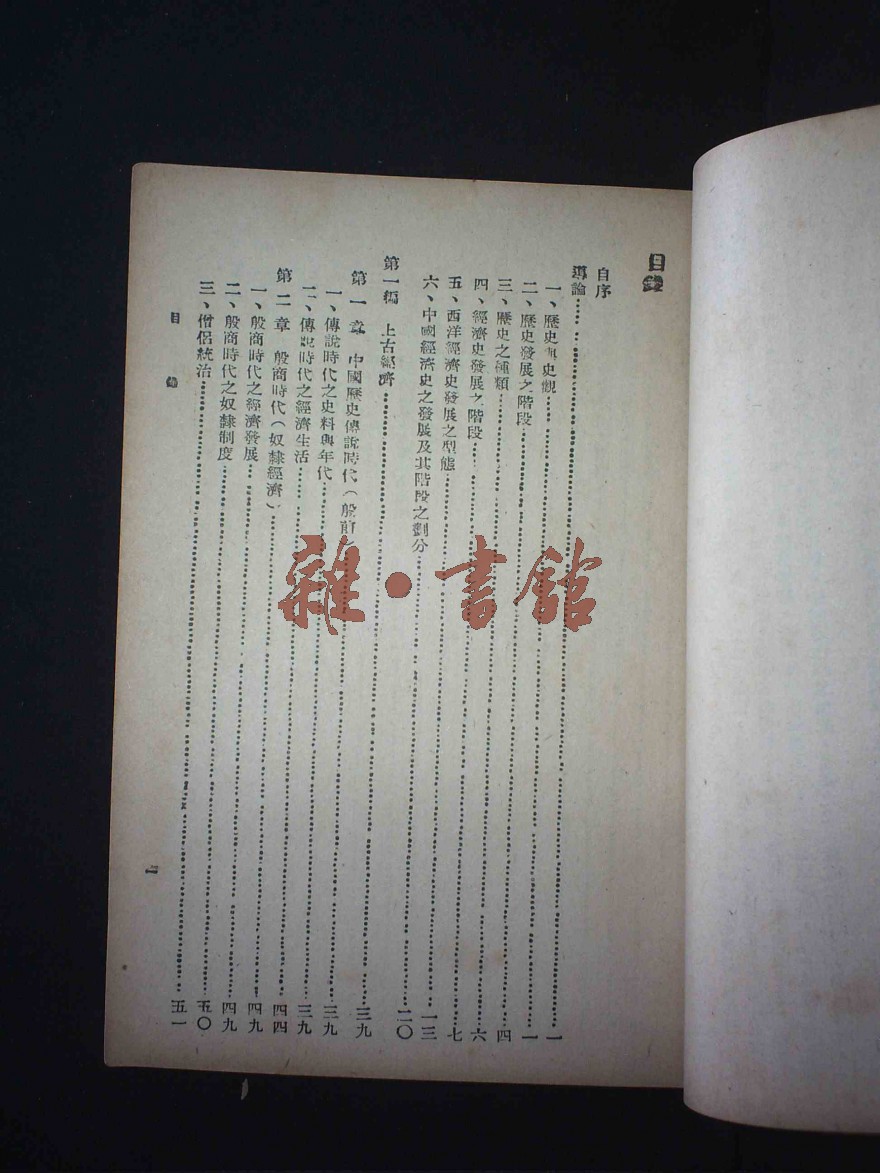 目錄
自序
導論……一
一、歷史與史觀……一
二、歷史發展之階段……四
三、歷史之種類……六
四、經濟史發展之階段……七
五、西洋經濟史發展之型態……一三
六、中國經濟史之發展及其階段之劃分……二〇
第一編 上古經濟……三九
第一章 中國歷史傳說時代（殷前……三九
一、傳說時代之史料與年代……三九
二、傳說時代之經濟生活……四四
第二章 殷商時代（奴隸經濟）……四九
一、殷商時代之經濟發展……四九
二、殷商時代之奴隸制度……五〇
三、僧侶統治……五一
目錄
一
雜·書館